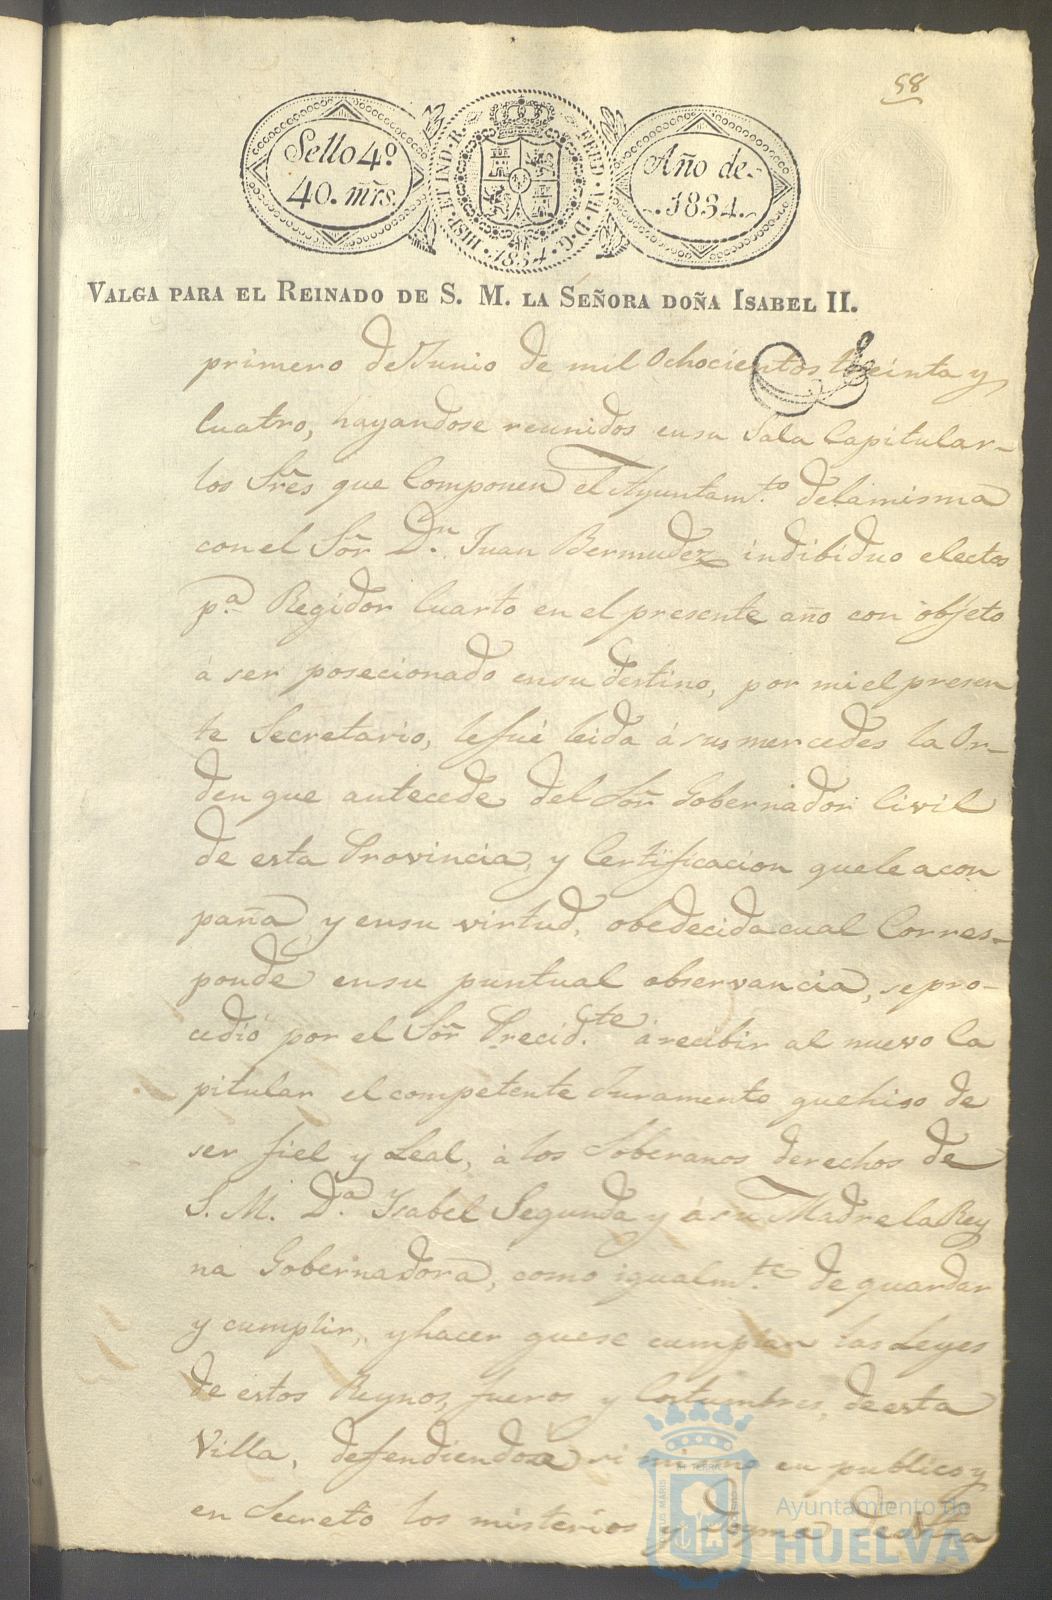 58
Sello 4º
40. mrs.
HISP. ET IND. R. FERD. VII. D. G. 1834.
Año de
1834.
VALGA PARA EL REINADO DE S. M. LA SEÑORA DOÑA ISABEL II.
primero de Junio de mil Ochocientos treinta y
Cuatro, hayandose reunidos ensu Sala Capitular
los Sres que Componen el Ayuntam.to delamisma
con el Sor Dn. Juan Bermudez indibiduo electos
pa. Regidor Cuarto en el presente año con objeto
á ser posecionado ensu destino, por mi el presen
te Secretario, le fué leida á sus mercedes la Or-
den que antecede del Sor Gobernador Civil
de esta Provincia, y Certificacion que le acon
paña, y ensu virtud, obedecida cual Corres-
ponde ensu puntual observancia, se pro-
cedió por el Sor Precid.te á recibir al nuevo Ca
pitular el competente Juramento que hiso de
ser fiel y Leal, á los Soberanos derechos de
S. M. Da. Isabel Segunda y á su Madre la Rey
na Gobernadora, como igualm.te de guardar
y cumplir, y hacer que se cumplan las Leyes
de estos Reynos, fueros y Costumbres, de esta
Villa, defendiendo a si mismo en publico y
en Secreto los misterios y
Ayuntamiento de
HUELVA